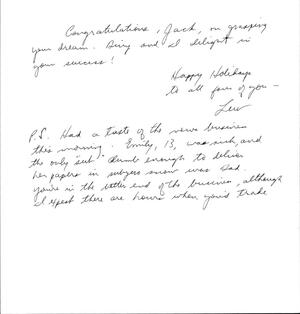 Congratulations, Jack, on grasping
your dream. and I delight in
your success!
Happy Holidays
to all four of you —
Lew
P.S. Had a taste of the news business
this morning. Emily, 13, was sick, and
the only "sub" dumb enough to deliver
her papers in subzero snow was Dad.
You're in the better end of the business, although
I expect there are hours when you'd trade